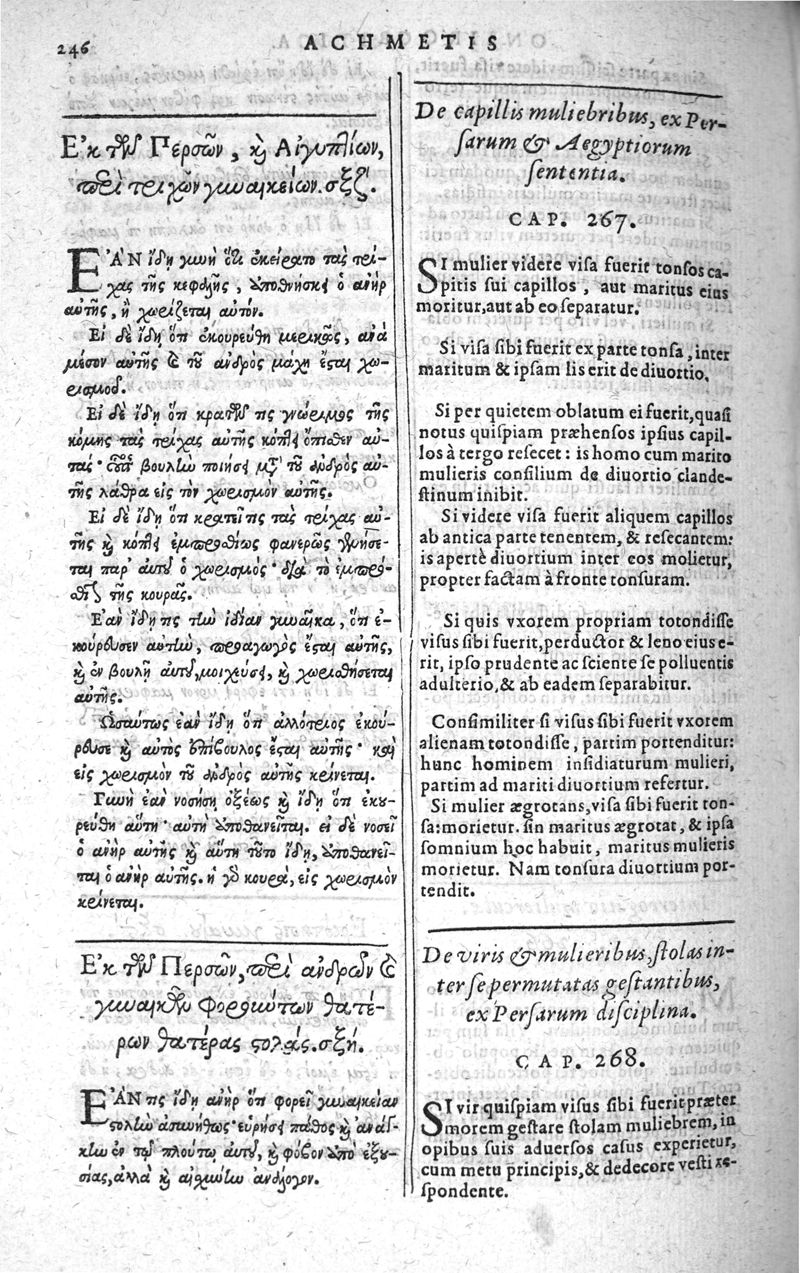 246
ACHMETIS
Ἐκ τῶν Περσῶν, καὶ Αἰγυπτίων,
περὶ τριχῶν γυναικείων. σξζ.
ΕΑΝ ἴδῃ γυνὴ ὅτι ἐκείρατο τὰς τρί-
χας τῆς κεφαλῆς, ἀποθνήσκει ὁ ἀνὴρ
αὐτῆς, ἢ χωρίζεται αὐτόν.
Εἰ δὲ ἴδῃ ὅτι ἐκουρεύθη μερικῶς, ἀνὰ
μέσον αὐτῆς καὶ τοῦ ἀνδρὸς μάχη ἔσται χω-
ρισμοῦ.
Εἰ δὲ ἴδῃ ὅτι κρατῶν τις γνώριμος τῆς
κόμης τὰς τρίχας αὐτῆς κόπτει ὄπιθεν αὐ-
τάς· οὗτος βουλὴν ποιήσει μετὰ τοῦ ἀνδρὸς αὐ-
τῆς λάθρα εἰς τὸν χωρισμὸν αὐτῆς.
Εἰ δὲ ἴδῃ ὅτι κρατεῖ τις τὰς τρίχας αὐ-
τῆς καὶ κόπτει ἐμπροσθίως φανερῶς γενήσε-
ται παρ' αὐτοῦ ὁ χωρισμός· διὰ τὸ ἐμπρό-
θεν τῆς κουρᾶς.
Ἐὰν ἴδῃ τις τὴν ἰδίαν γυναῖκα, ὅτι ἐ-
κούρευσεν αὐτὴν, προαγωγὸς ἔσται αὐτῆς,
καὶ ἐν βουλῇ αὐτοῦ μοιχεύσει, καὶ χωρισθήσεται
αὐτῆς.
Ὡσαύτως ἐὰν ἴδῃ ὅτι ἀλλότριος ἐκού-
ρευσε καὶ αὐτὸς ἐπίβουλος ἔσται αὐτῆς· καὶ
εἰς χωρισμὸν τοῦ ἀνδρὸς αὐτῆς κρίνεται.
Γυνὴ ἐὰν νοσήσῃ ὀξέως καὶ ἴδῃ ὅτι ἐκου-
ρεύθη αὕτη· αὐτὴ ἀποθανεῖται. εἰ δὲ νοσεῖ
ὁ ἀνὴρ αὐτῆς καὶ αὕτη τοῦτο ἴδῃ, ἀποθανεῖ-
ται ὁ ἀνὴρ αὐτῆς. ἡ γὰρ κουρὰ, εἰς χωρισμὸν
κρίνεται.
Ἐκ τῶν Περσῶν, περὶ ἀνδρῶν καὶ
γυναικῶν φορούντων θατέ-
ρων θατέρας στολάς. σξή.
ΕΑΝ τις ἴδῃ ἀνὴρ ὅτι φορεῖ γυναικείαν
στολὴν ἀσυνήθως· εὑρήσει πάθος καὶ ἀνάγ-
κην ἐν τῷ πλούτῳ αὐτοῦ, καὶ φόβον ἀπὸ ἐξου-
σίας, ἀλλὰ καὶ αἰσχύνην ἀνάλογον.
De capillis muliebribus, ex Per-
sarum & Aegyptiorum
sententia.
CAP. 267.
SI mulier videre visa fuerit tonsos ca-
pitis sui capillos, aut maritus eius
moritur, aut ab eo separatur.
Si visa sibi fuerit ex parte tonsa, inter
maritum & ipsam lis erit de diuortio.
Si per quietem oblatum ei fuerit, quasi
notus quispiam præhensos ipsius capil-
los à tergo resecet: is homo cum marito
mulieris consilium de diuortio clande-
stinum inibit.
Si videre visa fuerit aliquem capillos
ab antica parte tenentem, & resecantem:
is apertè diuortium inter eos molietur,
propter factam à fronte tonsuram.
Si quis vxorem propriam totondisse
visus sibi fuerit, perductor & leno eius e-
rit, ipso prudente ac sciente se polluentis
adulterio, & ab eadem separabitur.
Consimiliter si visus sibi fuerit vxorem
alienam totondisse, partim portenditur:
hunc hominem insidiaturum mulieri,
partim ad mariti diuortium refertur.
Si mulier ægrotans, visa sibi fuerit ton-
sa: morietur. sin maritus ægrotat, & ipsa
somnium hoc habuit, maritus mulieris
morietur. Nam tonsura diuortium por-
tendit.
De viris & mulieribus, stolas in-
ter se permutatas gestantibus,
ex Persarum disciplina.
CAP. 268.
SI vir quispiam visus sibi fuerit præter
morem gestare stolam muliebrem, in
opibus suis aduersos casus experietur,
cum metu principis, & dedecore vesti re-
spondente.